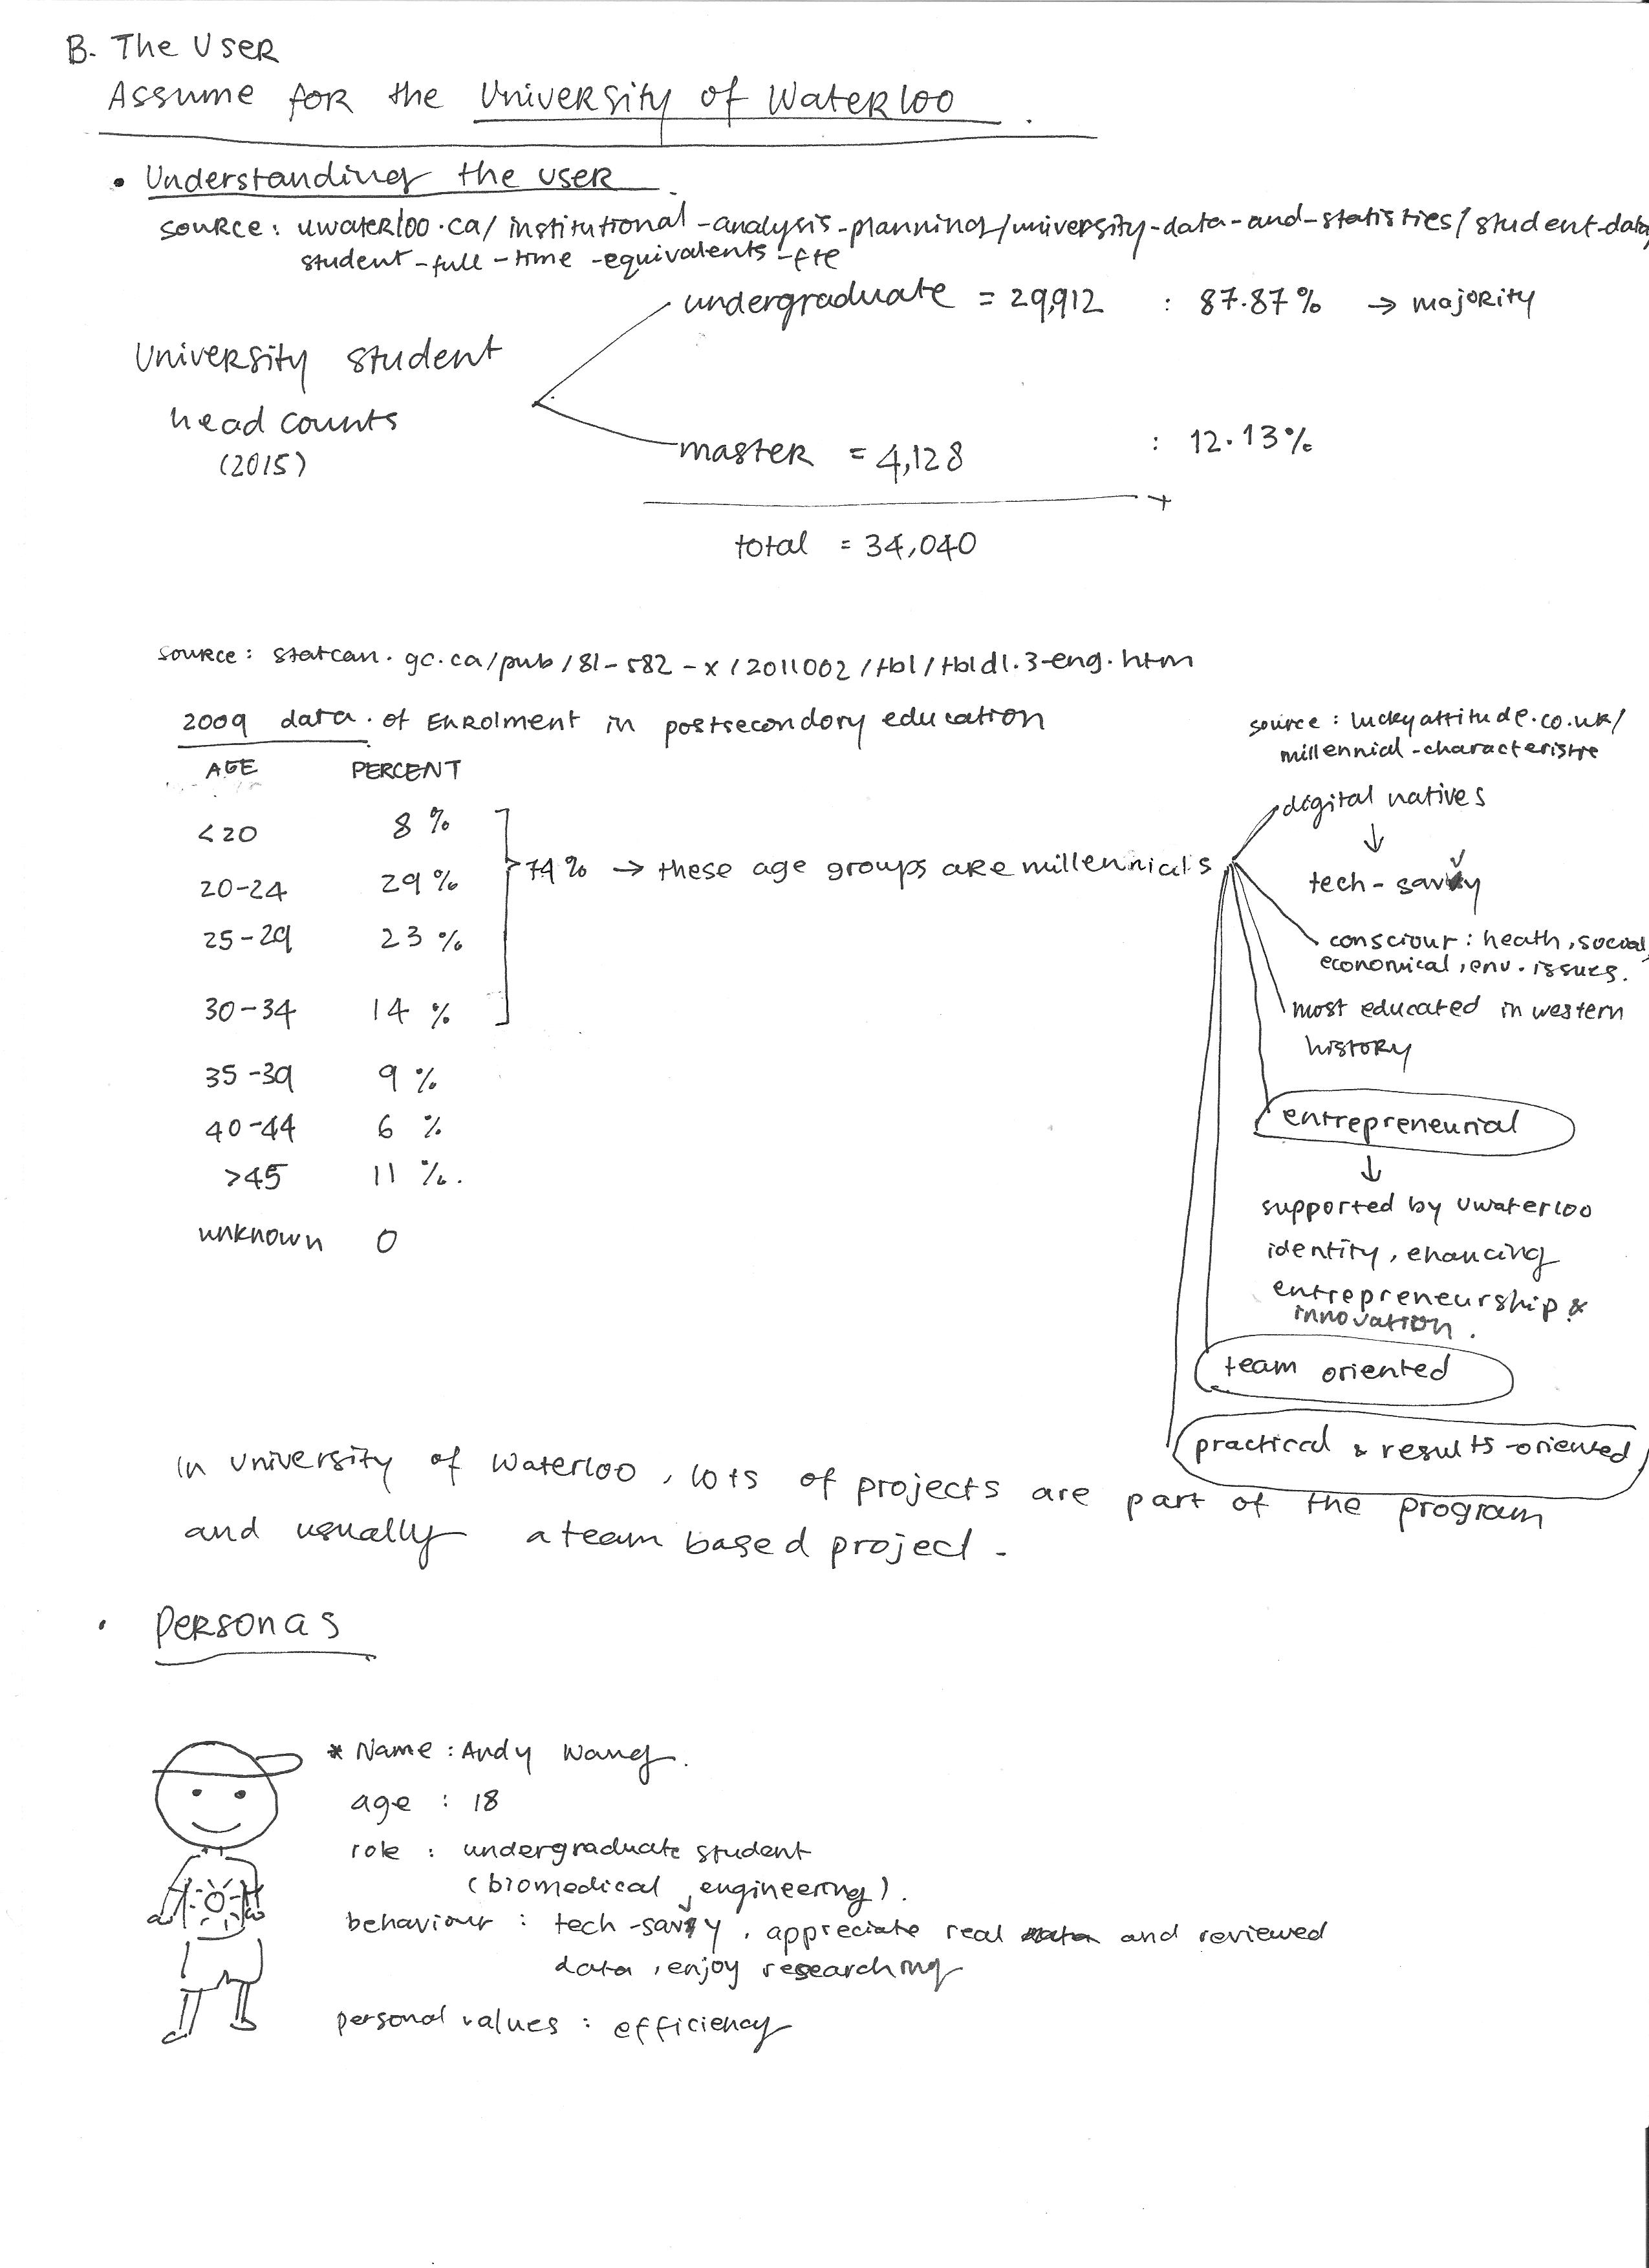 B. The User
Assume for the University of Waterloo.
• Understanding the user.
source: uwaterloo.ca/institutional-analysis-planning/university-data-and-statisties/student-data/
student-full-time-equivalents-fte
University student
head counts
(2015)
undergraduate = 29,912 : 87.87% → majority
master = 4,128 : 12.13%
+
total = 34,040
source: statcan.gc.ca/pub/81-582-x/2011002/tbl/tbld1.3-eng.htm
2009 data. of Enrolment in postsecondory education
AGE PERCENT
<20 8%
20-24 29%
25-29 23%
30-34 14%
35-39 9%
40-44 6%
>45 11%.
unknown 0
74% → these age groups are millennials
source: luckyattitude.co.uk/
millennial-characteristre
digital natives
↓
tech-savvy
consciour: heath, social,
economical, env. issues.
most educated in western
history
entrepreneurial
↓
supported by uwaterloo
identity, enancing
entrepreneurship &
innovation.
team oriented
practical & results-oriented
In University of Waterloo, lots of projects are part of the program
and usually a team based project.
• Personas
* Name: Andy Wang.
age: 18
role: undergraduate student
(biomedical engineering).
behaviour: tech-savvy, appreciate real data and reviewed
data, enjoy researching
personal values: efficiency